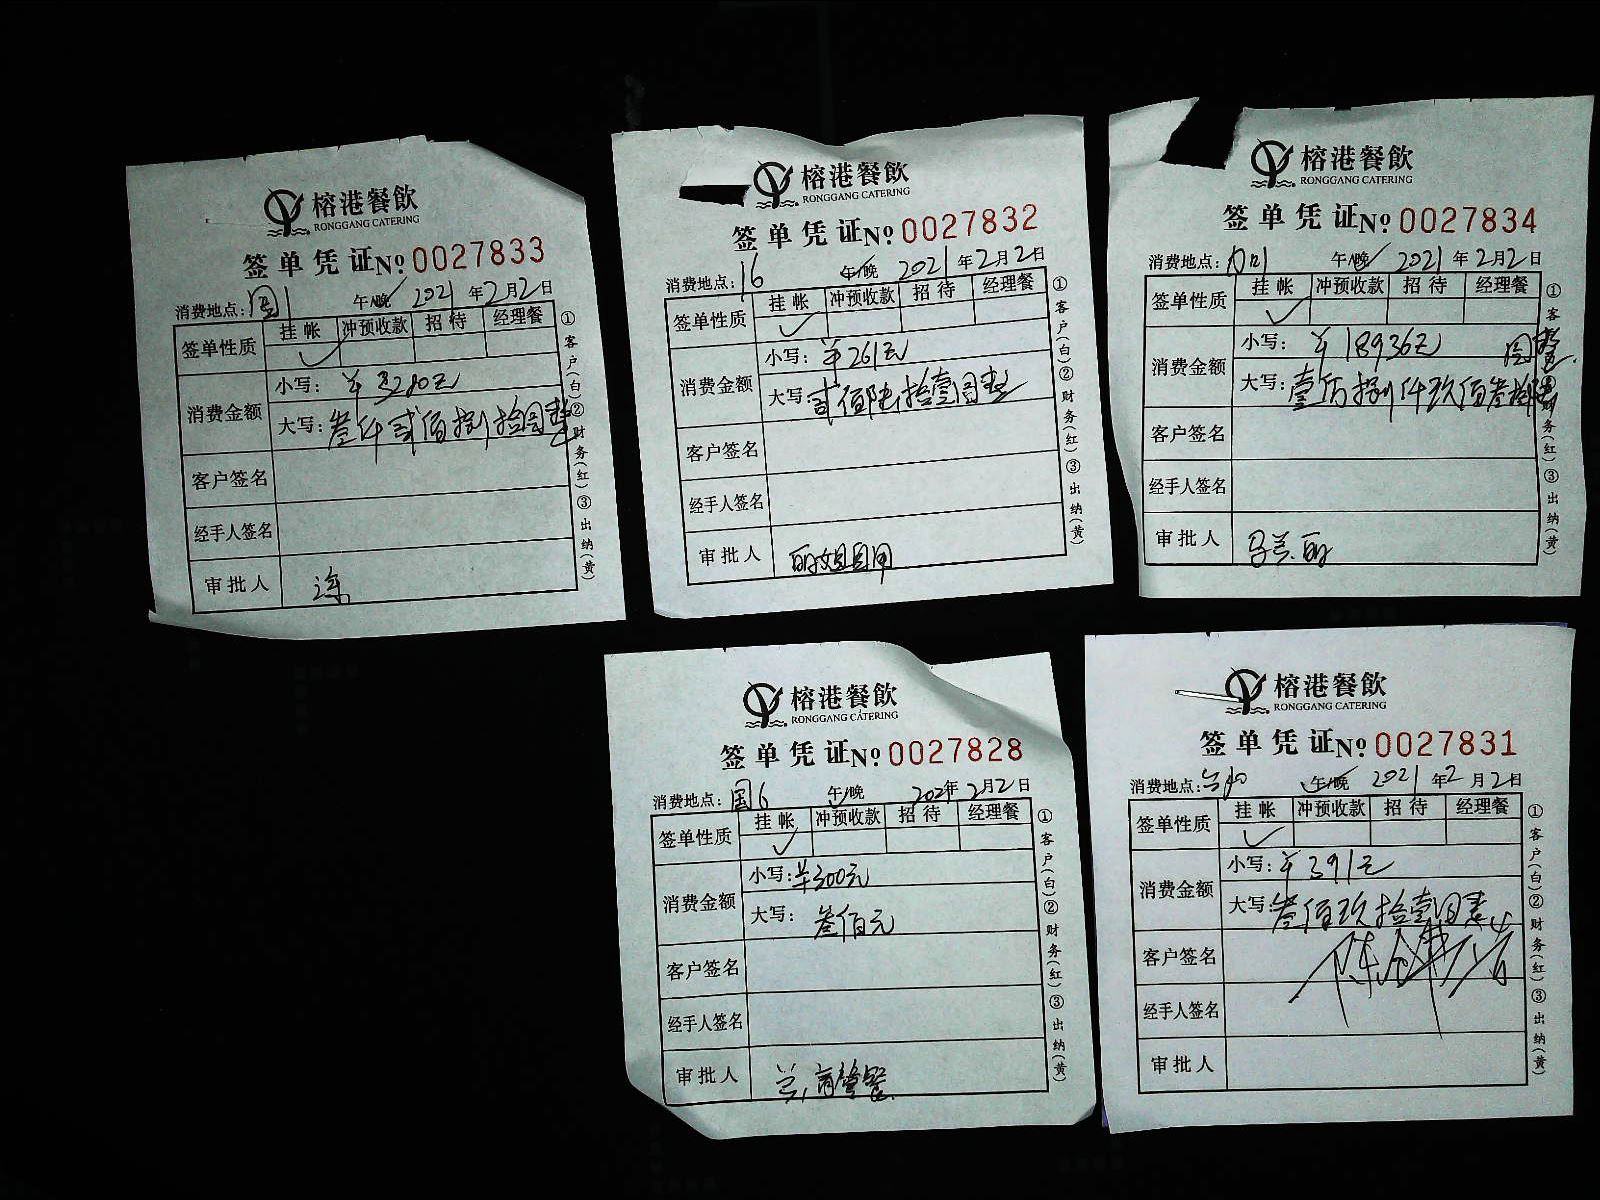 榕港餐飲
RONGGANG CATERING
签单凭证 № 0027833
消费地点: 午/晚 2021年2月2日
签单性质 挂帐 冲预收款 招待 经理餐
✓
消费金额 小写: ¥3280元
大写: 叁仟贰佰捌拾圆整
客户签名
经手人签名
审批人
①客户(白)②财务(红)③出纳(黄)
榕港餐飲
RONGGANG CATERING
签单凭证 № 0027832
消费地点: 16 午/晚 2021年2月2日
签单性质 挂帐 冲预收款 招待 经理餐
✓
消费金额 小写: ¥261元
大写: 贰佰陆拾壹圆整
客户签名
经手人签名
审批人 丽姐自用
①客户(白)②财务(红)③出纳(黄)
榕港餐飲
RONGGANG CATERING
签单凭证 № 0027834
消费地点: 午/晚 2021年2月2日
签单性质 挂帐 冲预收款 招待 经理餐
✓
消费金额 小写: ¥18936元
大写: 壹万捌仟玖佰叁拾陆圆整
客户签名
经手人签名
审批人
①客户(白)②财务(红)③出纳(黄)
榕港餐飲
RONGGANG CATERING
签单凭证 № 0027828
消费地点: 国6 午/晚 2021年2月2日
签单性质 挂帐 冲预收款 招待 经理餐
✓
消费金额 小写: ¥300元
大写: 叁佰元
客户签名
经手人签名
审批人
①客户(白)②财务(红)③出纳(黄)
榕港餐飲
RONGGANG CATERING
签单凭证 № 0027831
消费地点: 午/晚 2021年2月2日
签单性质 挂帐 冲预收款 招待 经理餐
✓
消费金额 小写: ¥391元
大写: 叁佰玖拾壹圆整
客户签名
经手人签名
审批人
①客户(白)②财务(红)③出纳(黄)